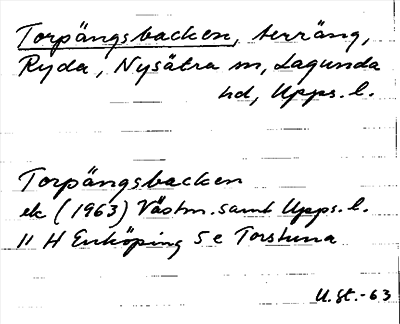 Torpängsbacken, terräng,
Ryda, Nysätra sn, Lagunda
hd, Upps. l.
Torpängsbacken
ek (1963) Västm. samt Upps. l.
11 H Enköping 5 e Torstuna
U.St.-63